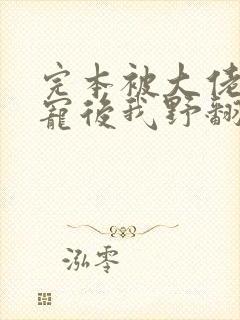 完本被大佬
寵後我野翻
泓零